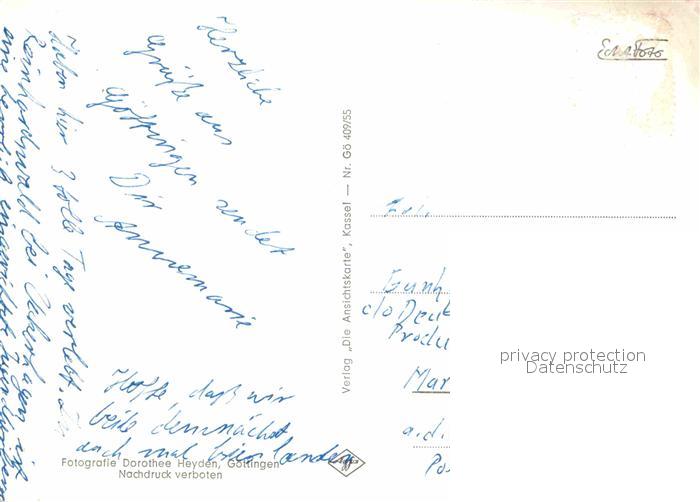 Herzliche
Grüße aus
Göttingen sendet
Dir
Annemarie
Haben hier 3 tolle Tage verlebt.
Reinhardswald bei
Hoffe, daß wir
beide demnächst
auch mal hier landen
Fotografie Dorothee Heyden, Göttingen
Nachdruck verboten
Verlag „Die Ansichtskarte", Kassel — Nr. Gö 409/55
Echt Foto
c/o Deut
Produ
Mar
a.d.
Po
privacy protection
Datenschutz